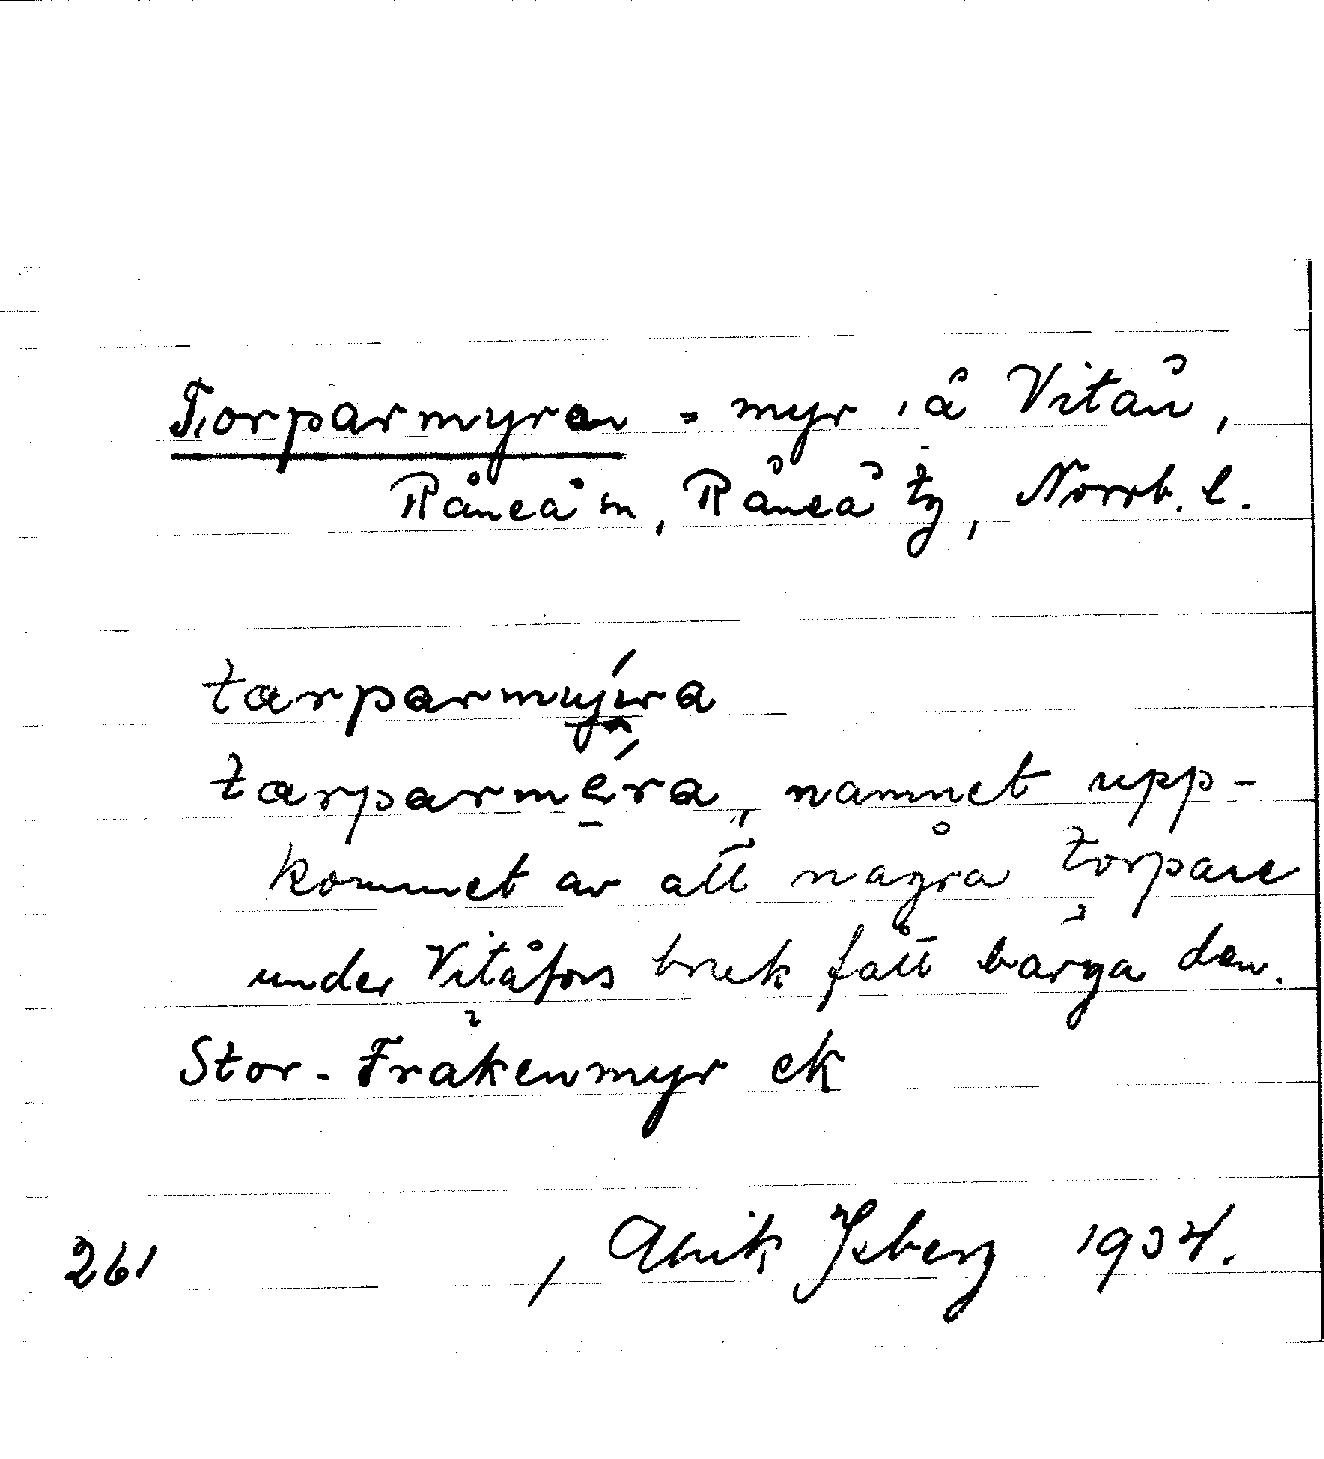 Torparmyran = myr, å Vitån,
Råneå sn, Råneå tg, Norrb. l.
tarparmýra
tarparméra, namnet upp-
kommet av att några torpare
under Vitåfors bruk fått bärga den.
Stor-Fräkenmyr ek
261 , Alrik Isberg 1934.